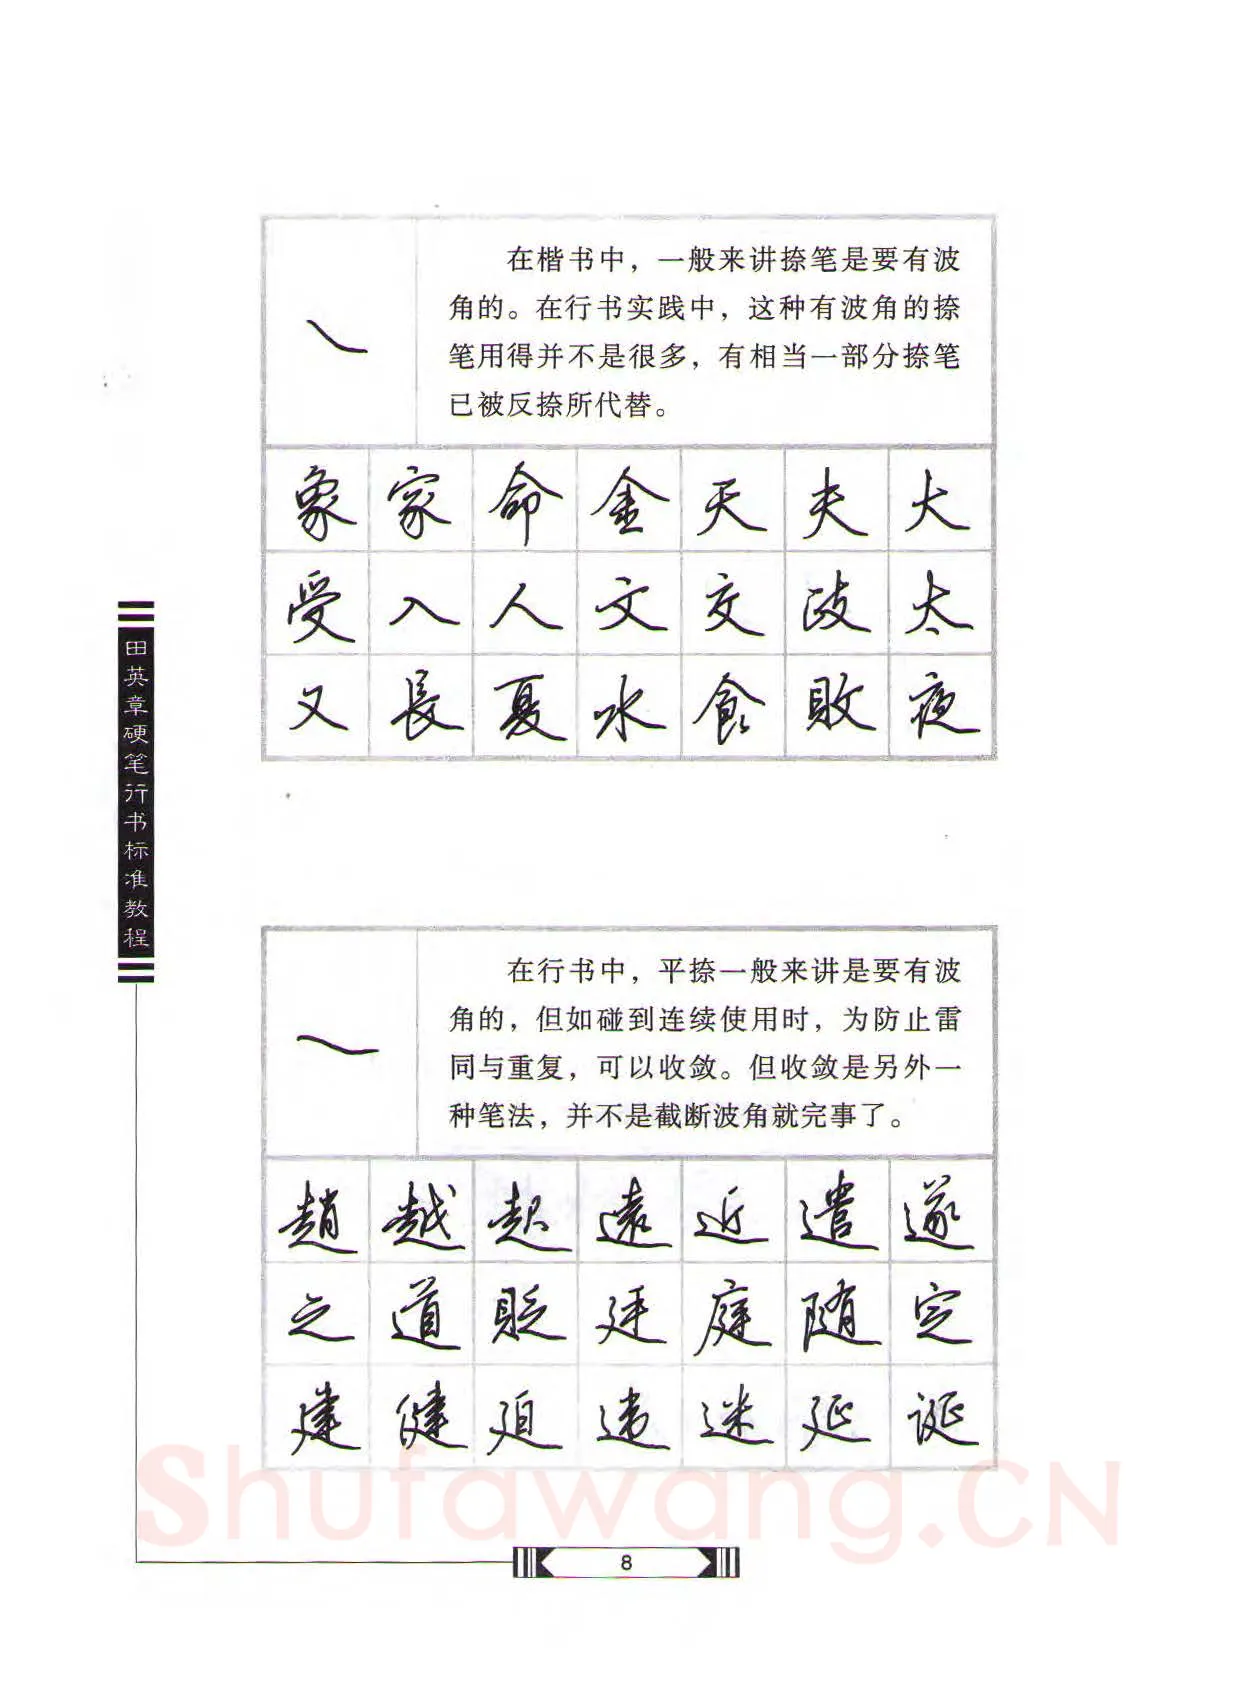 在楷书中，一般来讲捺笔是要有波
角的。在行书实践中，这种有波角的捺
笔用得并不是很多，有相当一部分捺笔
已被反捺所代替。
象家命金天夫大
受入人文交歧太
又長夏水食敗夜
田英章硬笔行书标准教程
在行书中，平捺一般来讲是要有波
角的，但如碰到连续使用时，为防止雷
同与重复，可以收敛。但收敛是另外一
种笔法，并不是截断波角就完事了。
趙越起遠近遣遂
之道貶廷庭随定
建健迫違迷延诞
Shufawang.CN
8